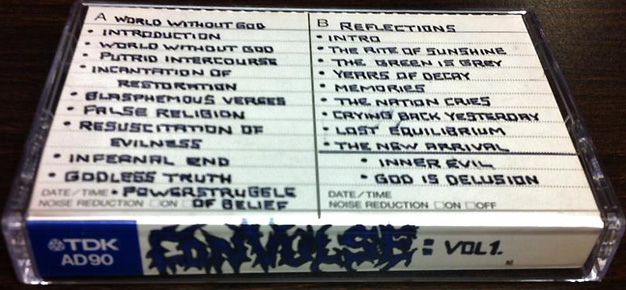 A WORLD WITHOUT GOD
• INTRODUCTION
• WORLD WITHOUT GOD
• PUTRID INTERCOURSE
• INCANTATION OF
RESTORATION
• BLASPHEMOUS VERSES
• FALSE RELIGION
• RESUSCITATION OF
EVILNESS
• INFERNAL END
• GODLESS TRUTH
DATE/TIME • POWERSTRUGGLE
NOISE REDUCTION □ON OF BELIEF
B REFLECTIONS
• INTRO
• THE RITE OF SUNSHINE
• THE GREEN IS GREY
• YEARS OF DECAY
• MEMORIES
• THE NATION CRIES
• CRYING BACK YESTERDAY
• LOST EQUILIBRIUM
• THE NEW ARRIVAL
• INNER EVIL
• GOD IS DELUSION
DATE/TIME
NOISE REDUCTION □ON □OFF
TDK
AD90
CONVULSE: VOL1.